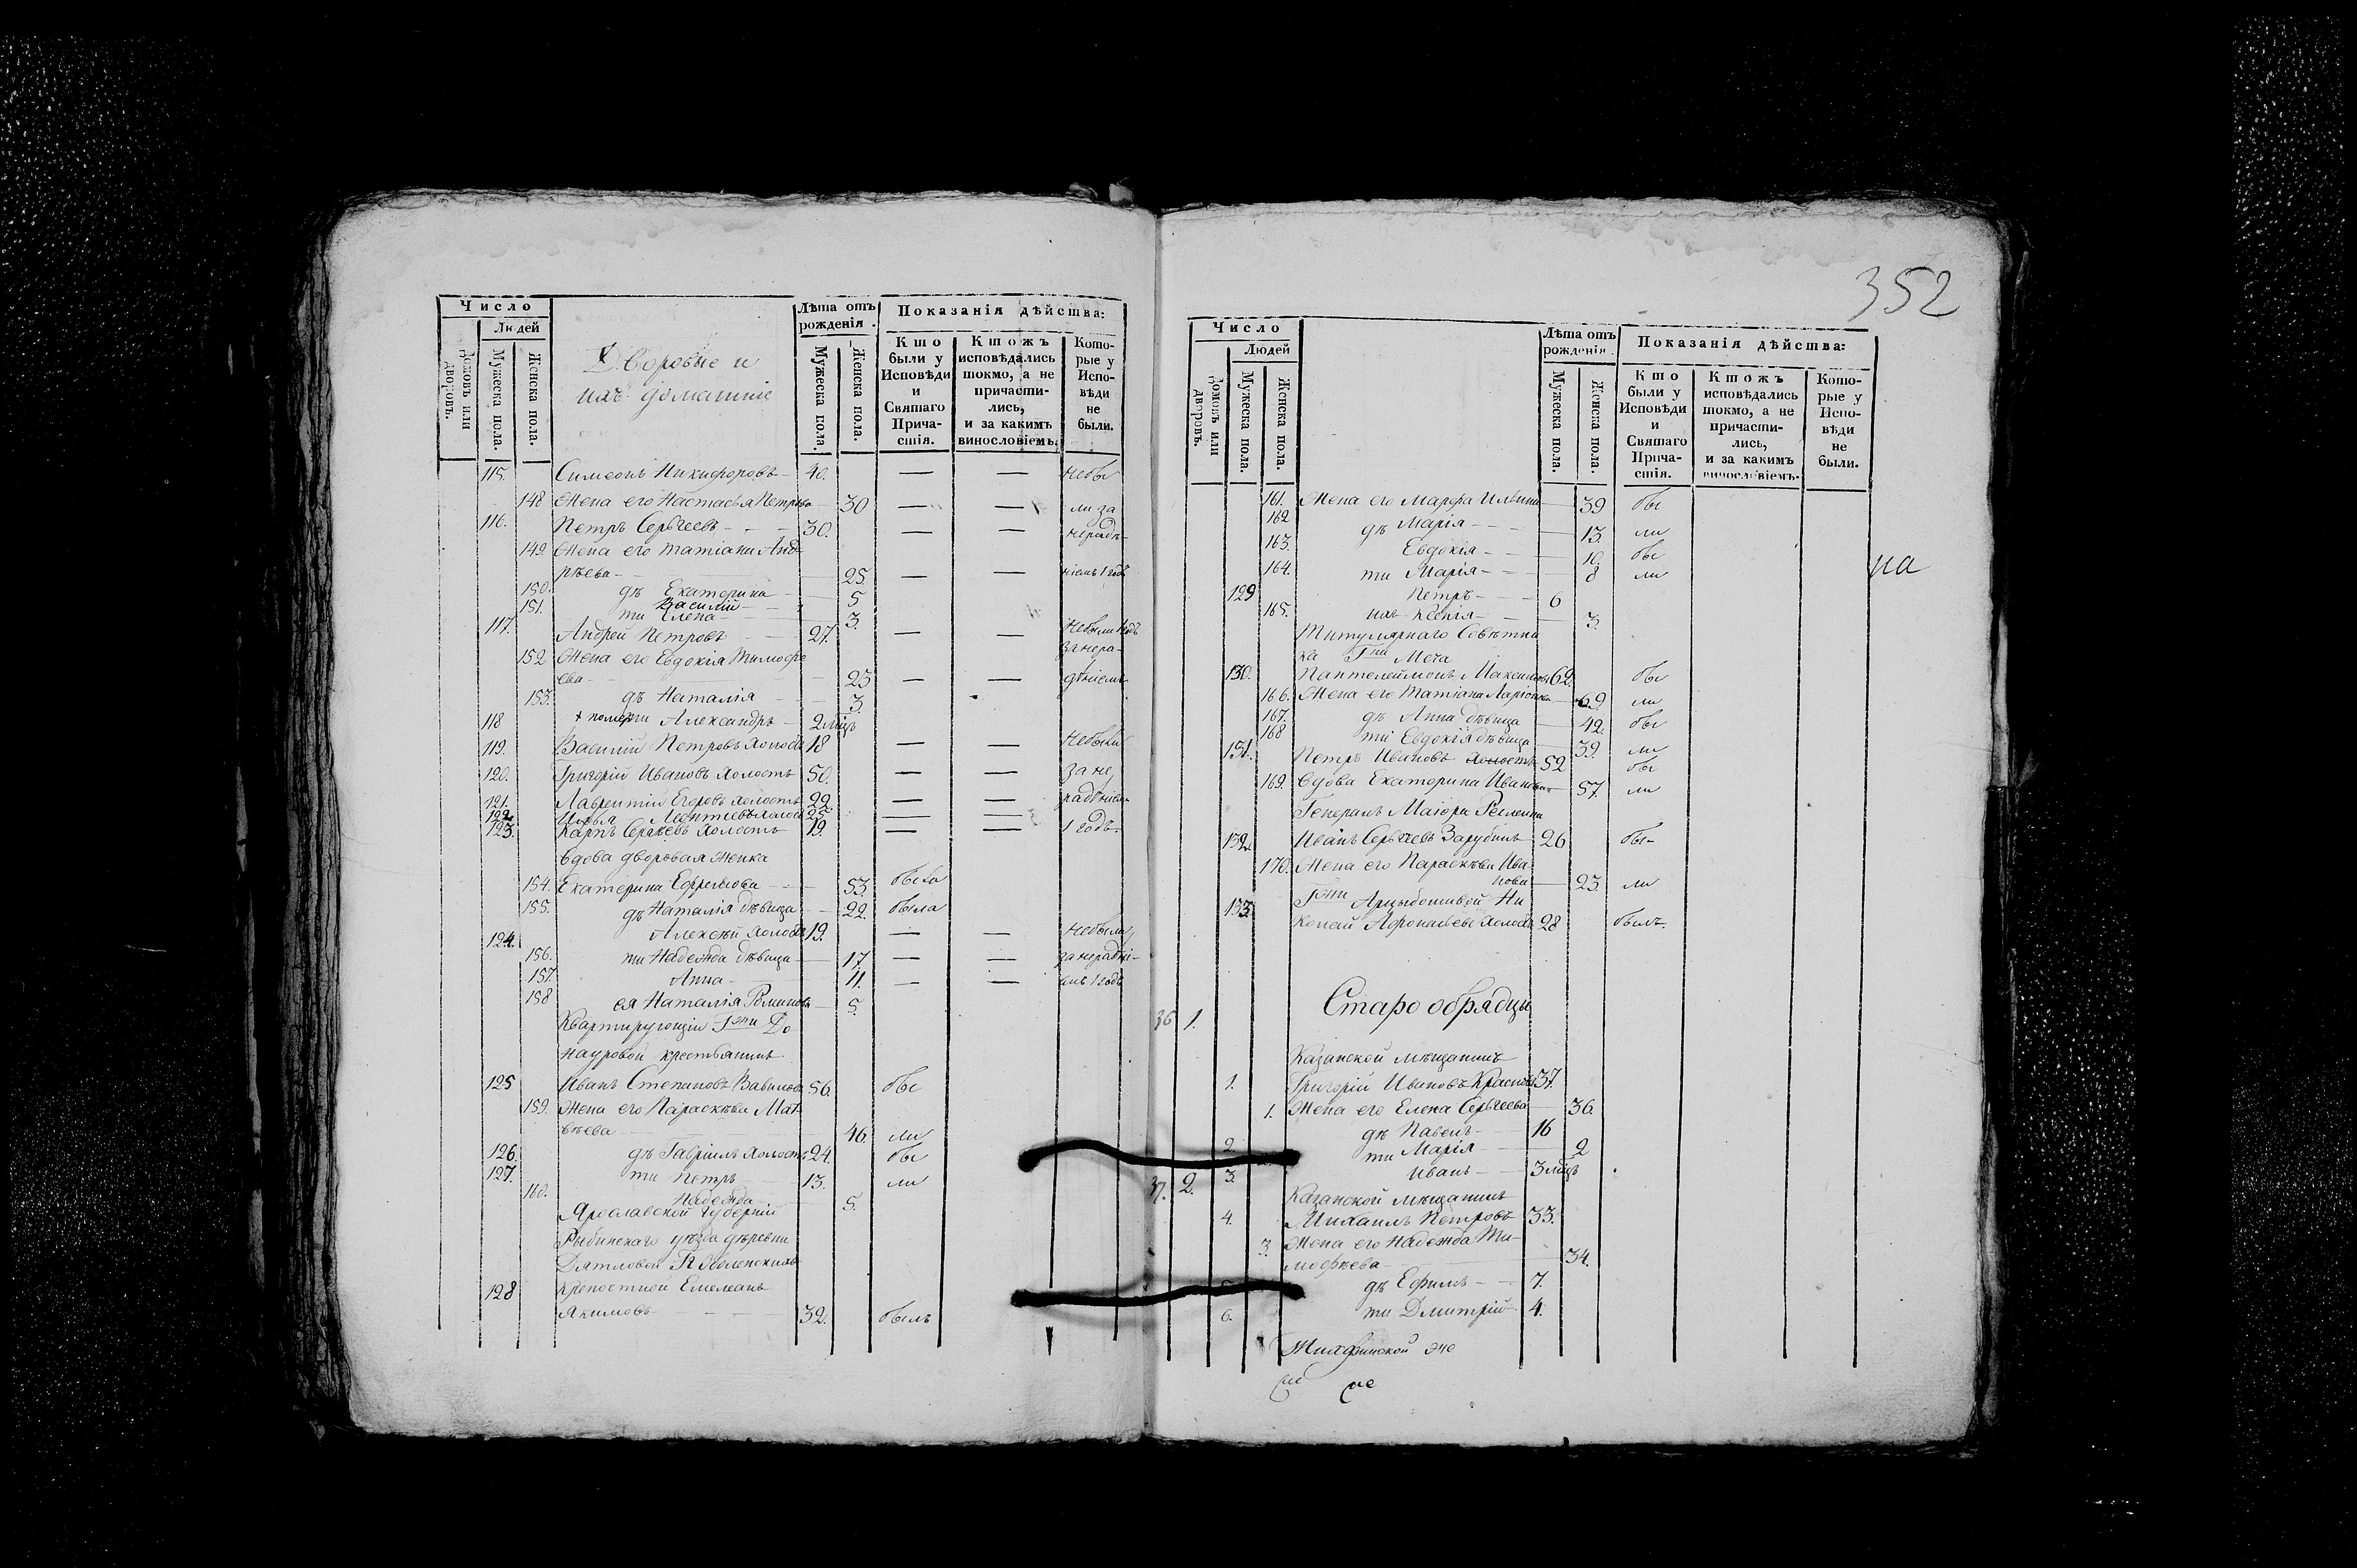 Число
Людей
Домовъ или дворовъ.
Мужеска пола.
Женска пола.
Дворовые и
ихъ домашніе
Лѣта отъ
рожденія.
Мужеска пола.
Женска пола.
Показанія дѣйства:
Кто
были у
Исповѣди
и
Святаго
Прича-
стія.
Ктожъ
исповѣдались
токмо, а не
причасти-
лись,
и за какимъ
винословіемъ.
Кото-
рые у
Испо-
вѣди
не
были.
115. Симеонъ Никифоровъ 40. — — небы
148 Жена его Настасья Петрова 30 — — ли за
116. Петръ Сергѣевъ 30. — — нерадѣ-
149. Жена его Татіана Анд
рѣева 25. — — ніемъ 1 годъ
150. дѣ Екатерина 5
Василій
151. ти Елена 3.
117. Андрей Петровъ 27. — — небыли 1 годъ
152 Жена его Евдокія Тимофе за нера-
ева 23 — — дѣніемъ
153. дѣ Наталія 3.
118 + померъ ти Александръ 2 мѣцъ
119. Василій Петровъ холостъ 18 — — небыли
120. Григорій Ивановъ холостъ 50. — — за не
121. Лаврентій Егоровъ холостъ 22. — — радѣніем
122. Илья Леонтіевъ холост 25 — —
123. Карпъ Сергѣевъ холостъ 19. — — 1 годъ.
Вдова дворовая женка
154. Екатерина Ефремова 53. была
155. дѣ Наталія дѣвица 22. была
124. Алексѣй холостъ 19. — — небыли
156. ти Надежда дѣвица 17 — — за нерадѣні-
157. Анна 11. — — емъ 1 годъ
158 ея Наталія Романова 5.
Квартирующіи Гжи До
науровой крестьянинъ
125 Иванъ Степановъ Вавиловъ 56. бы
159. Жена его Параскѣва Мат
вѣева 46. ли
126. дѣ Гавріилъ холостъ 24. бы
127. ти Петръ 13. ли
160. Надежда 5.
Ярославской губерніи
Рыбинскаго уѣзда деревни
Дятловой
128 крепостной Емельянъ
Якимовъ 32. былъ
352
Число
Людей
Домовъ или дворовъ.
Мужеска пола.
Женска пола.
Лѣта отъ
рожденія.
Мужеска пола.
Женска пола.
Показанія дѣйства:
Кто
были у
Исповѣди
и
Святаго
Прича-
стія.
Ктожъ
исповѣдались
токмо, а не
причасти-
лись,
и за какимъ
винословіемъ.
Кото-
рые у
Испо-
вѣди
не
были.
161. Жена его Марфа Ильина 39 бы
162 дѣ Марія 13. ли
163. Евдокія 10. бы
164. ти Марія 8 ли
на
129 Петръ 6
165. ихъ Ксенія 3.
Титулярнаго Совѣтни
ка Гна Меча
130. Пантелеймонъ Максимовъ 62. бы
166. Жена его Татіана Ларіонова 69 ли
167. дѣ Анна дѣвица 42. бы
168 ти Евдокія дѣвица 39. ли
131. Петръ Ивановъ холостъ 52 бы
169. Вдова Екатерина Иванова 57. ли
Генералъ Маіора
132. Иванъ Сергѣевъ Зарубинъ 26 бы-
170. Жена его Параскѣва Ива
нова 23. ли
133. Гжи Арцыбашевой Ни
колай Афонасьевъ холостъ 28 былъ.
Старообрядцы
36 1.
Казанской мѣщанинъ
1. Григорій Ивановъ 37.
1. Жена его Елена Сергѣева 36.
2. дѣ Павелъ 16
ти Марія 2
3. Иванъ 3 мѣцъ
37. 2.
Казанской мѣщанинъ
4. Михаилъ Петровъ 33.
3. Жена его Надежда Ти-
мофѣева 34.
дѣ Ефимъ 7.
6. ти Дмитрій 4.